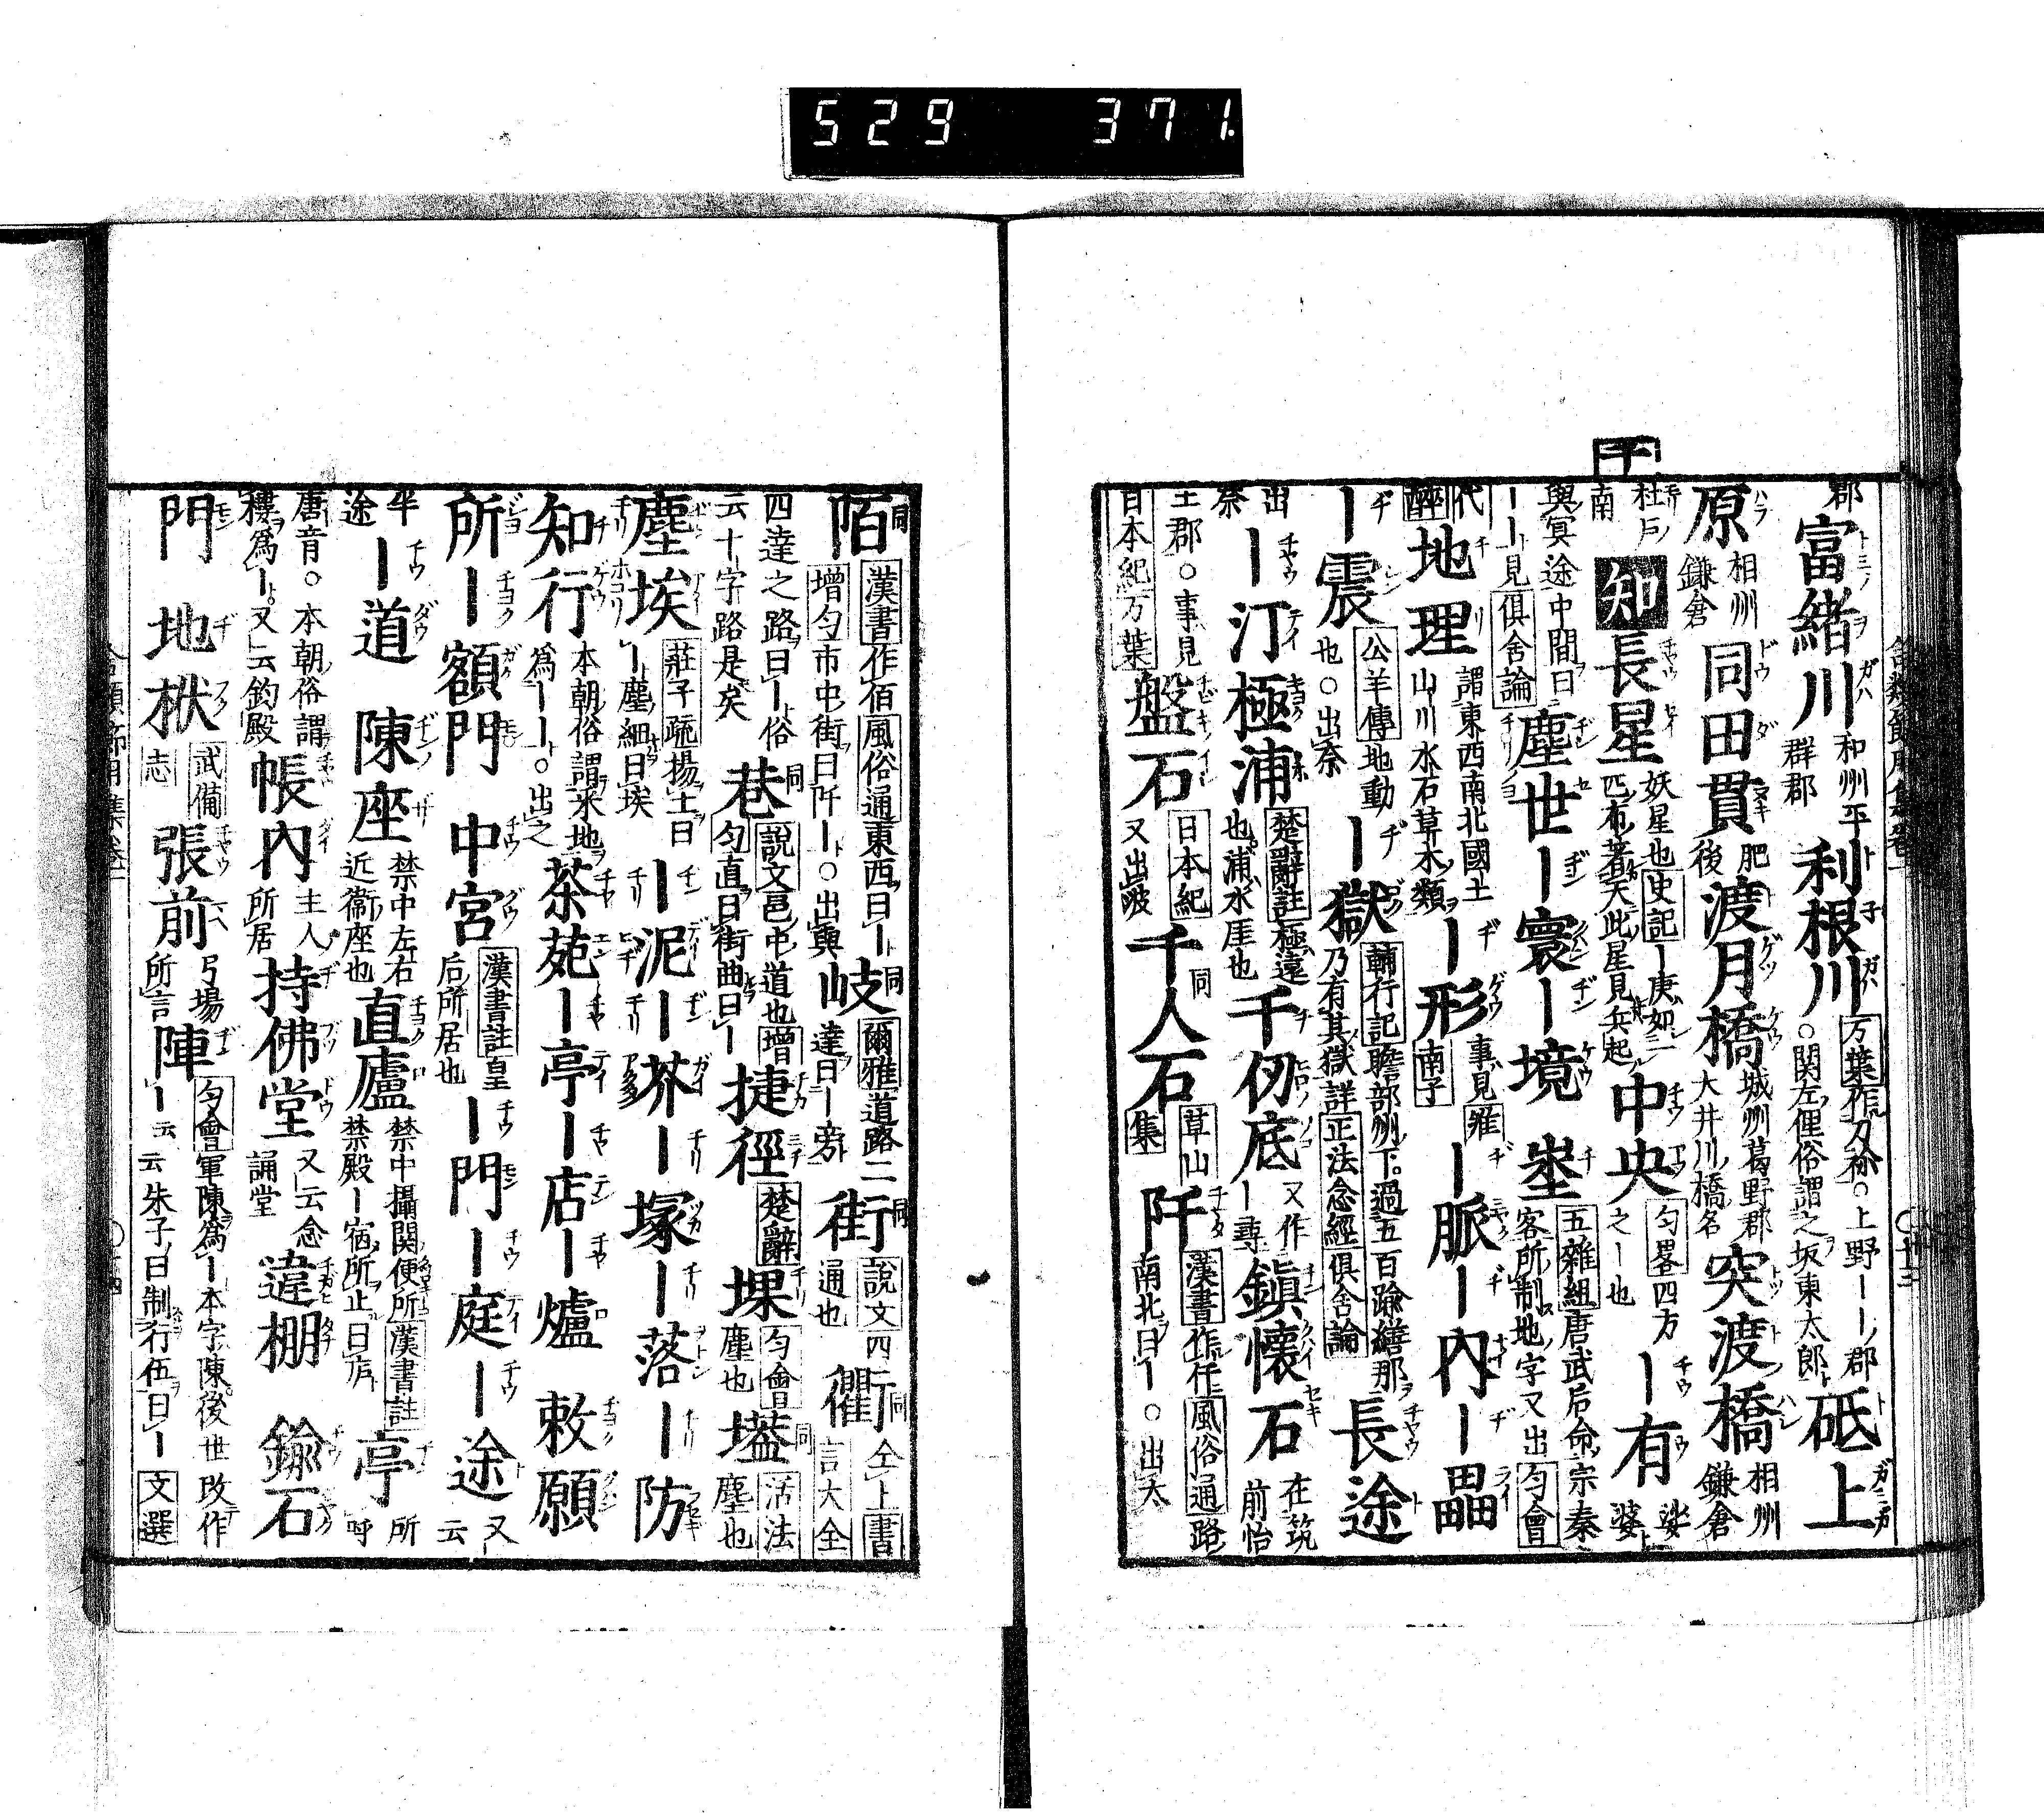 529 371.
チ
郡 富緒川 和州平群郡 利根川 万葉作刀祢○上野ーー郡○関左俚俗謂之坂東太郎 砥上
原 相州鎌倉 同田貫 肥後 渡月橋 城州葛野郡大井川橋名 突渡橋 相州鎌倉
杜戸南 知 長星 妖星也史記ー庚如一匹布著天此星見兵起 中央 匀畧四方之ー也 ー有 娑婆
與冥途中間曰ーー見倶舎論 塵世 ー寰 ー境 埊 五雜組唐武后命宗秦客所制地字又出匀會
代醉 地理 謂東西南北國土山川水石草木類 ー形 事見淮南子 ー脈 ー内 ー畾
ー震 公羊傳地動也○出奈 ー獄 輔行記贍部州下過五百踰繕那乃有其獄詳正法念經倶舎論 長途
出奈 ー汀 極浦 楚辭註極遠也浦水厓也 千仞底 又作ー尋 鎭懷石 在筑前怡
土郡○事見日本紀万葉 盤石 日本紀又出波 千人石 草山集 阡 漢書作仟風俗通路南北曰ー○出太
陌 漢書作佰風俗通東西曰ー増匀市中街曰阡ー○出與 岐 爾雅道路二達曰ー旁 街 説文四通也 衢 仝上書言大全
四達之路曰ー俗云十字路是矣 巷 説文邑中道也増匀直曰街曲曰ー 捷徑 楚辭 堁 匀會塵也 壒 活法塵也
塵埃 莊子疏揚土曰ー塵細曰埃 ー泥 ー芥 ー塚 ー落 ー防
知行 本朝俗謂采地爲ーー○出之 茶苑 ー亭 ー店 ー爐 敕願
所 ー額門 中宮 漢書註皇后所居也 ー門 ー庭 ー途 又云
半途 ー道 陳座 禁中左右近衞座也 直廬 禁中攝関便所漢書註禁殿ー宿所止曰庐 亭 所呼
唐音○本朝俗謂樓爲ー又云釣殿 帳内 主人所居 持佛堂 又云念誦堂 違棚 鍮石
門 地栿 武備志 張前 弓場所言 陣 匀會軍陳爲ー本字陳後世改作ー云云朱子曰制行伍曰ー文選